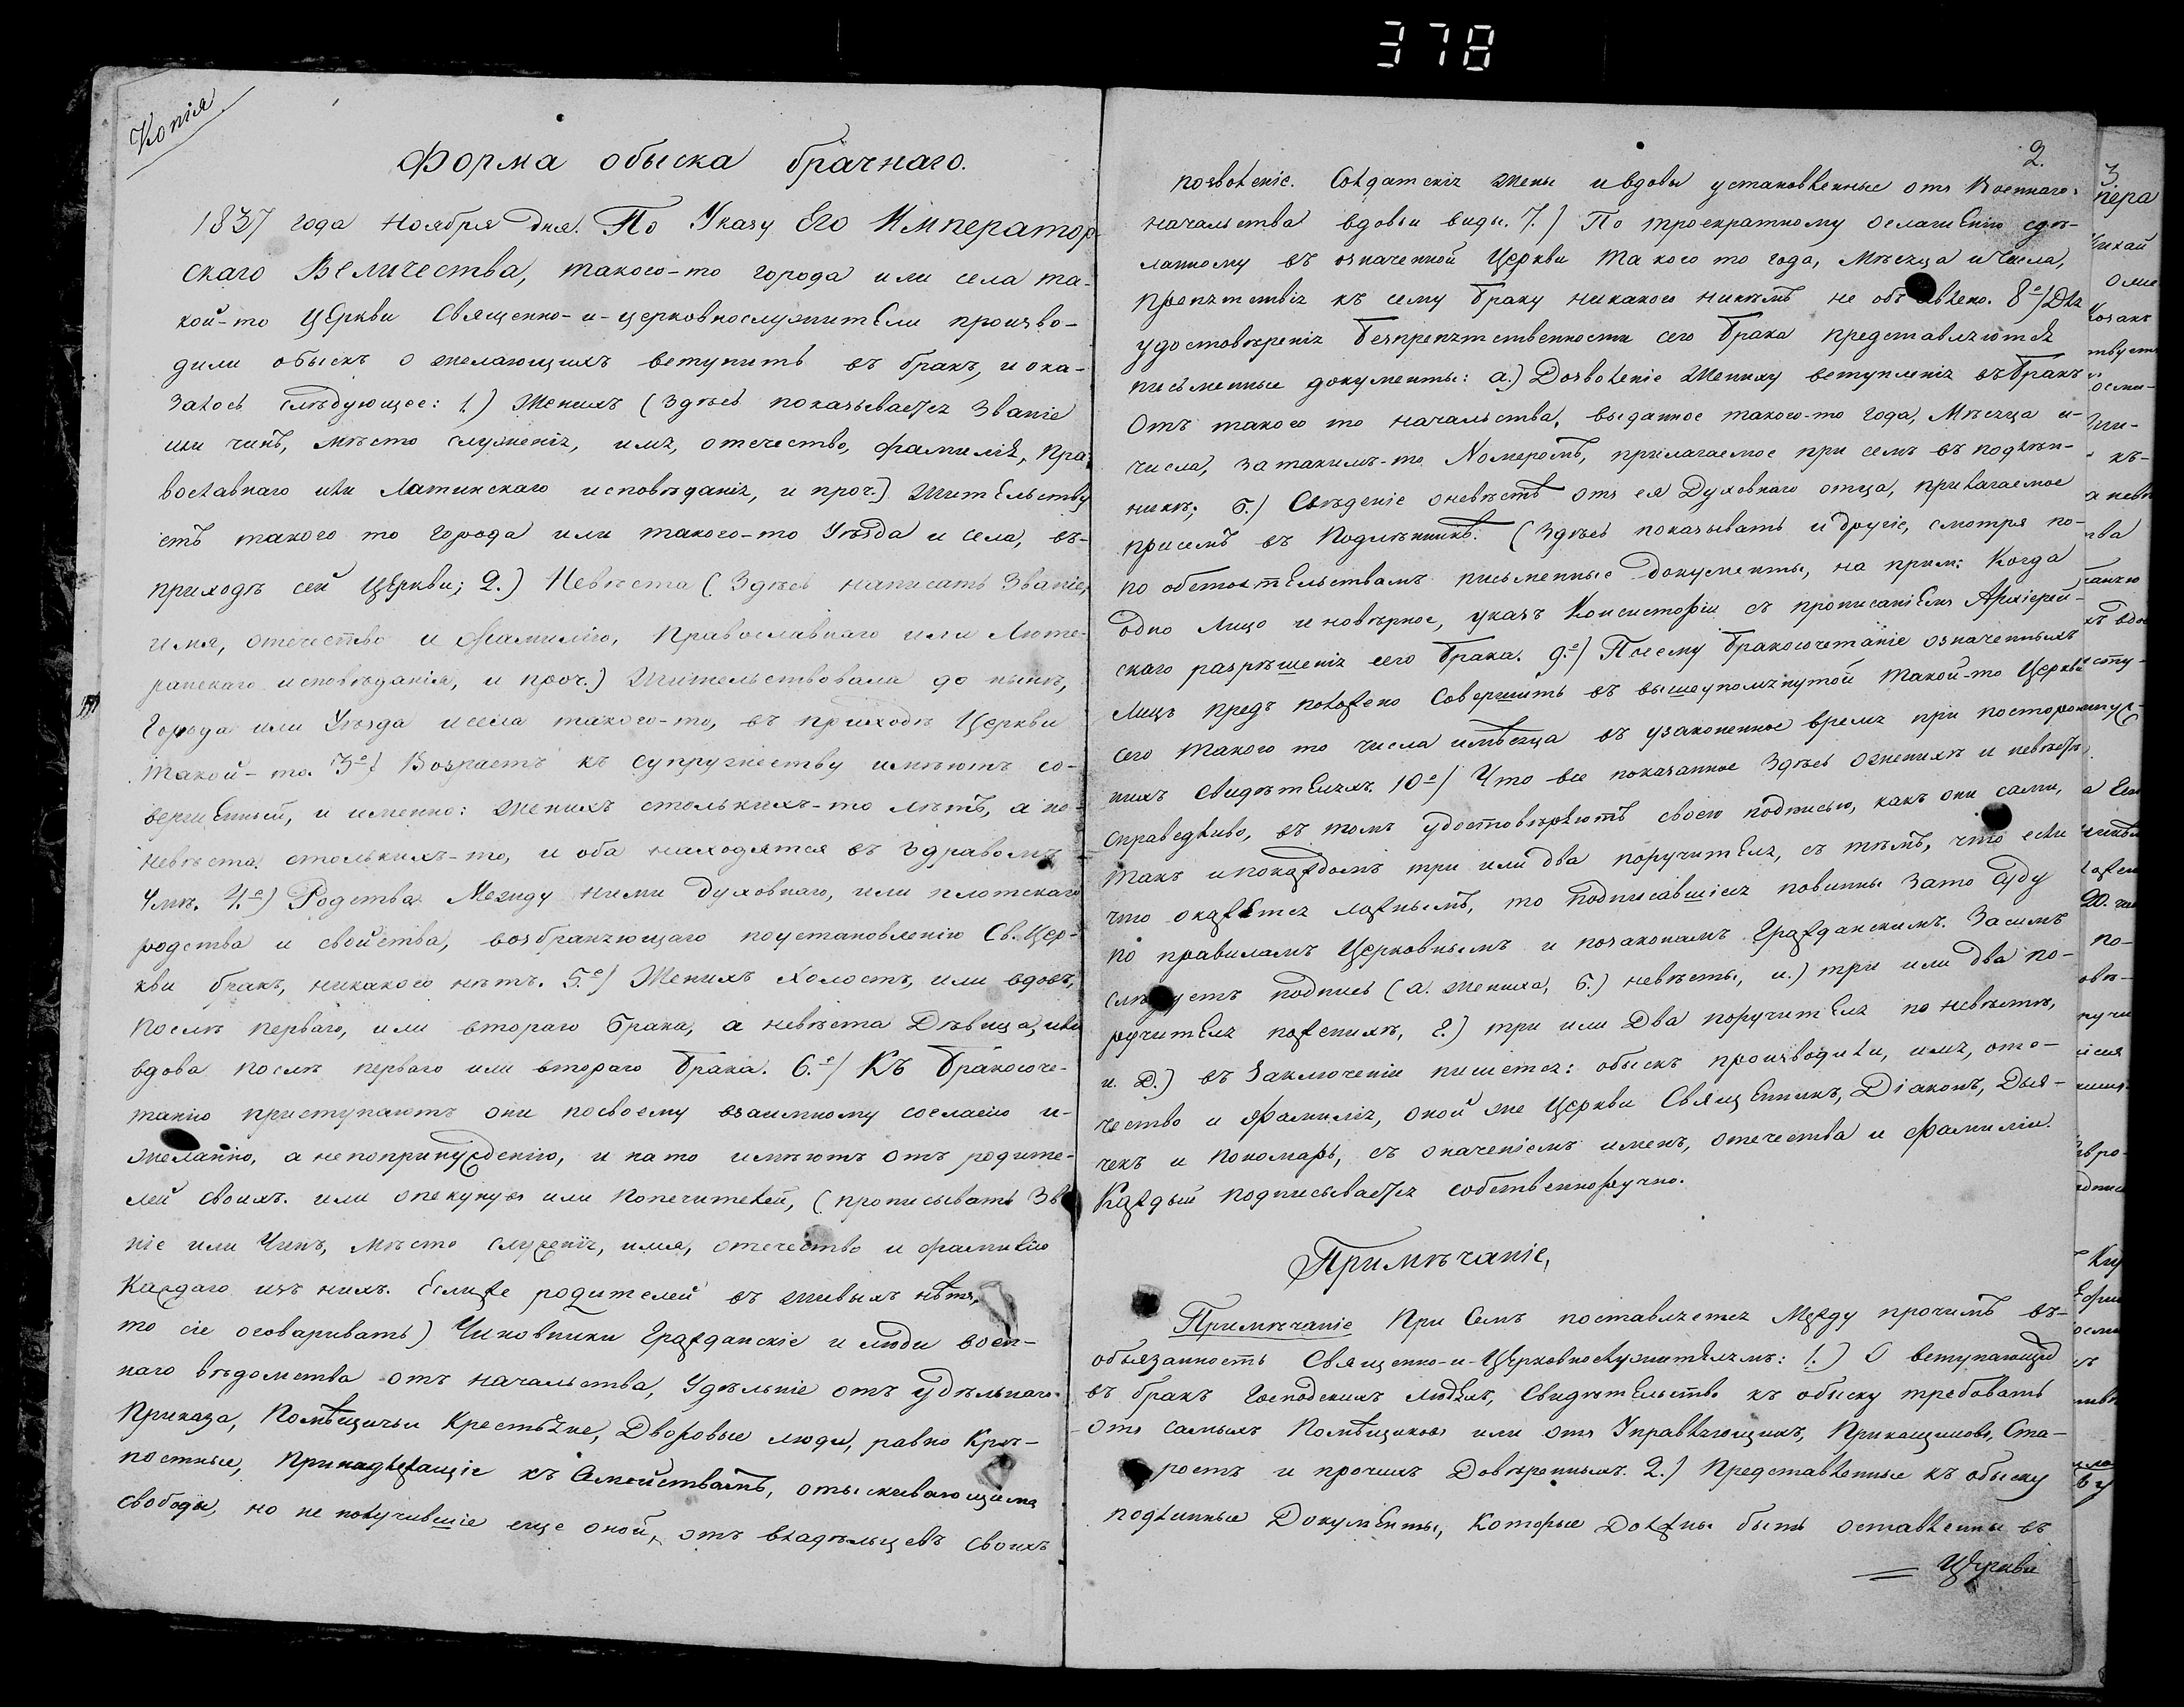 378
Копія
Форма обыска брачнаго.
1837 года Ноября дня. По Указу Его Император-
скаго Величества, такого-то города или села та-
кой-то Церкви Священно-и-церковнослужители произво-
дили обыскъ о желающихъ вступить въ бракъ, и ока-
залось слѣдующее: 1.) Женихъ (здѣсь показывается званіе
или чинъ, мѣсто служенія, имя, отечество, фамилія, Пра-
вославнаго или Латинскаго исповѣданія, и проч.) жительству
етъ такого то города или такого-то Уѣзда и села, въ-
приходѣ сей Церкви; 2.) Невѣста (Здѣсь написать Званіе,
имя, отечество и Фамилію, Православнаго или Люте-
ранскаго исповѣданія, и проч.) жительствовала до нынѣ,
Города или Уѣзда и села такого-то, въ приходѣ Церкви
такой-то. 3е) Возрастъ къ супружеству имѣютъ со-
вершенный, и именно: женихъ столькихъ-то лѣтъ, а
невѣста столькихъ-то, и оба находятся въ здравомъ
Умѣ. 4.е) Родства Между ними духовнаго, или плотскаго
родства и свойства, возбраняющаго поустановленію Св. Цер-
кви бракъ, никакого нѣтъ. 5.е) Женихъ холостъ, или вдовъ,
послѣ перваго, или втораго брака, а невѣста Дѣвица, или
вдова послѣ перваго или втораго брака. 6.е) Къ бракосоче-
танію приступаютъ они посвоему взаимному согласію и-
желанію, а непопринужденію, и на то имѣютъ отъ родите-
лей своихъ или опекуновъ или Попечителей, (прописывать Зва
ніе или Чинъ, мѣсто служенія, имя, отечество и фамилію
Каждаго изъ нихъ. Еслиже родителей въ живыхъ нѣтъ,
то сіе оговаривать) Чиновники Гражданскіе и люди воен-
наго вѣдомства отъ начальства, Удѣльніе отъ удѣльнаго
Приказа, Помѣщичьи Крестьяне, Дворовые люди, равно Крѣ-
постные, Принадлежащіе къ Семействамъ, отыскивающимъ
свободы, но не получившіе еще оной, отъ владѣльцевъ своихъ
2.
позволеніе. Солдатскія жены и вдовы установленные отъ Военнаго
начальства вдовьи виды. 7.) По троекратному оглашенію сдѣ-
ланному въ означенной Церкви такого то года, Мѣсяца и Числа,
препятствія къ сему браку никакого никѣмъ не объявлено. 8е) Для
удостовѣренія безпрепятственности сего брака представляются
письменные документы: а.) Дозволеніе Жениху вступленія въ бракъ
Отъ такого то начальства, выданное такого-то года, Мѣсяца и-
числа, за такимъ-то Номеромъ, прилагаемое при семъ въ подлин-
никѣ; б.) Свѣденіе о невѣстѣ отъ ея Духовнаго отца, прилагаемое
присемъ въ Подлинникѣ. (Здѣсь показывать и другіе, смотря по-
по обстоятельствамъ письменные документы, на прим: Когда
одно лицо иновѣрное, указъ Консисторіи съ прописаніемъ Архіерей-
скаго разрѣшенія сего брака. 9.е) Посему бракосочетаніе означенныхъ
Лицъ предположено совершить въ вышеупомянутой такой-то Церкви
сего такого то числа и мѣсяца въ узаконенное время при посторон-
нихъ свидѣтеляхъ. 10е) Что все показанное здѣсь о женихѣ и невѣстѣ
справедливо, въ томъ удостовѣряютъ своею подписью, какъ они сами,
такъ и покаждомъ три или два поручителя, съ тѣмъ, что если
что окажется ложнымъ, то подписавшіеся повинны зато суду
по правиламъ Церковнымъ и позаконамъ Гражданскимъ. Засимъ
слѣдуетъ подпись (а. жениха, б.) невѣсты, и.) три или два по-
ручителя поженихѣ, г.) три или Два поручителя по невѣстѣ,
и. д.) въ Заключеніи пишется: обыскъ производили, имя, оте-
чество и Фамилія, оной же Церкви Священникъ, Діаконъ, Дья-
чекъ и Пономарь, съ означеніемъ именъ, отечества и фамиліи.
Каждый подписывается собственноручно.
Примѣчаніе,
Примѣчаніе При Семъ поставляется Между прочимъ въ-
обьязанность Священно-и-Церковнослужителямъ: 1.) О вступающихъ
въ бракъ Господскихъ людяхъ, Свидѣтельство къ обыску требовать
отъ самыхъ Помѣщиковъ или отъ Управляющихъ, Прикащиковъ, Ста-
ростъ и прочихъ Довѣренныхъ. 2.) Представленные къ обыску
подлинные Документы, которые Должны быть оставленны въ
Церкви